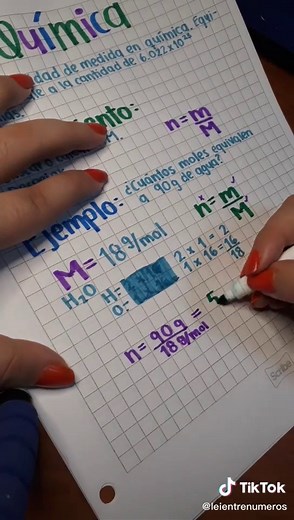 Química
dad de medida en química. Equi-
le a la cantidad de 6.022x10²³
ento:
n=m/M
M.
Ejemplo: ¿Cuántos moles equivalen
a 90g de agua?
n=m/M
M=18g/mol
H₂O H= 2x1=2
O= 1x16=16
18
n=90g/18g/mol = 5
Scribe
TikTok
@leientrenumeros